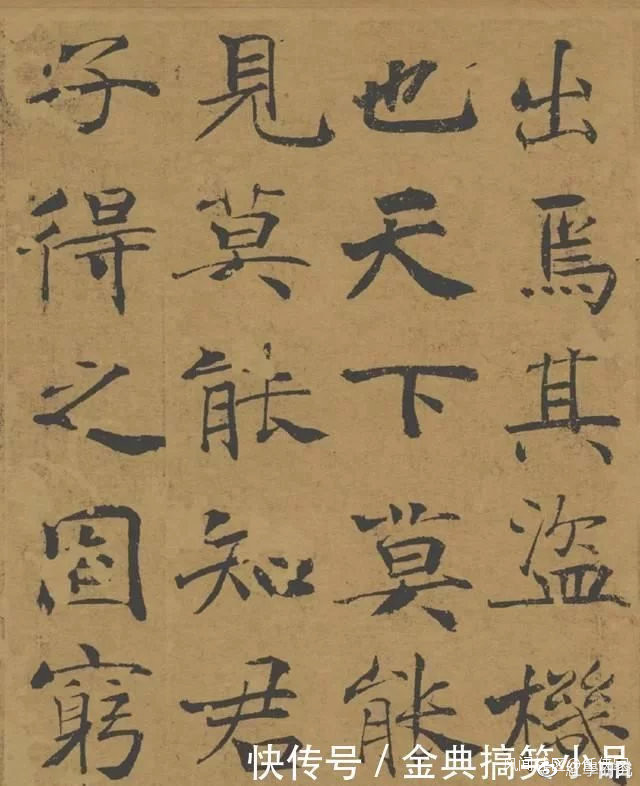 出焉其盜機
也天下莫能
見莫能知君
子得之固窮
快传号 / 金典搞笑小品